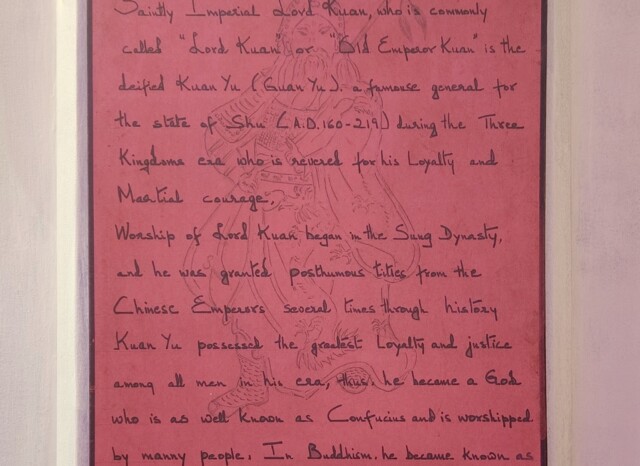 Saintly Imperial Lord Kuan, who is commonly
called "Lord Kuan" or "Old Emperor Kuan" is the
deified Kuan Yu (Guan Yu). a famouse general for
the state of Shu (A.D. 160-219) during the Three
Kingdoms era who is revered for his Loyalty and
Martial courage.
Worship of Lord Kuan began in the Sung Dynasty,
and he was granted posthumous titles from the
Chinese Emperors several times through history
Kuan Yu possessed the greatest Loyalty and justice
among all men in his era, thus. he became a God
who is as well known as Confucius and is worshipped
by manny people. In Buddhism. he became known as